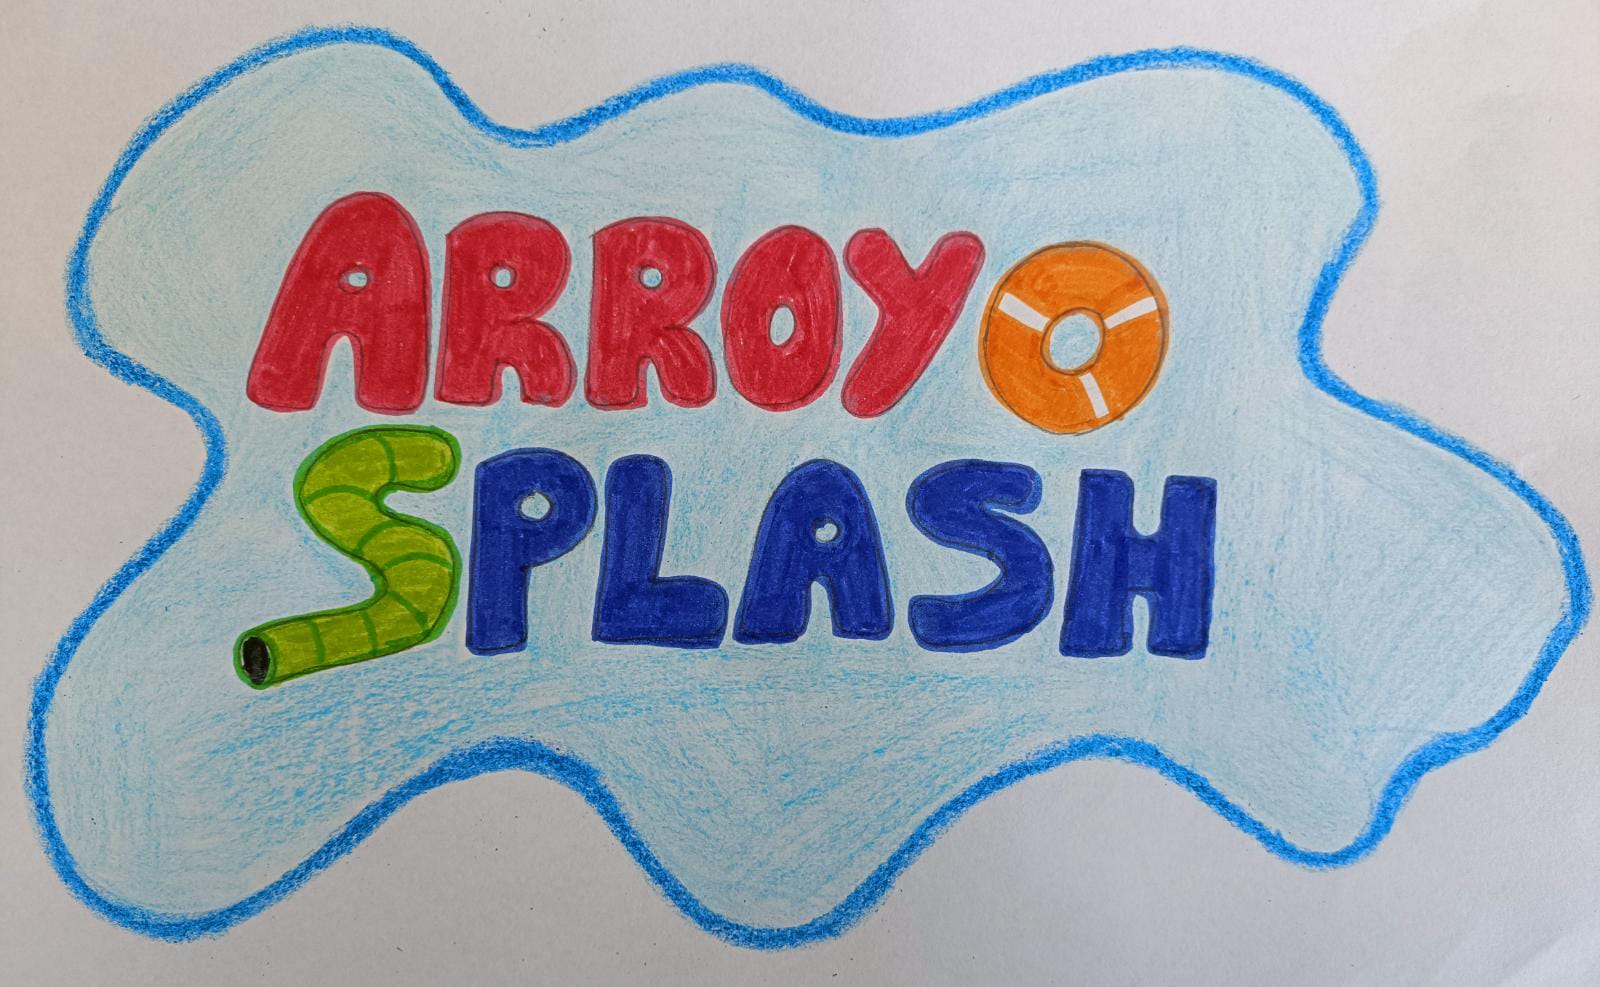 ARROYO
SPLASH